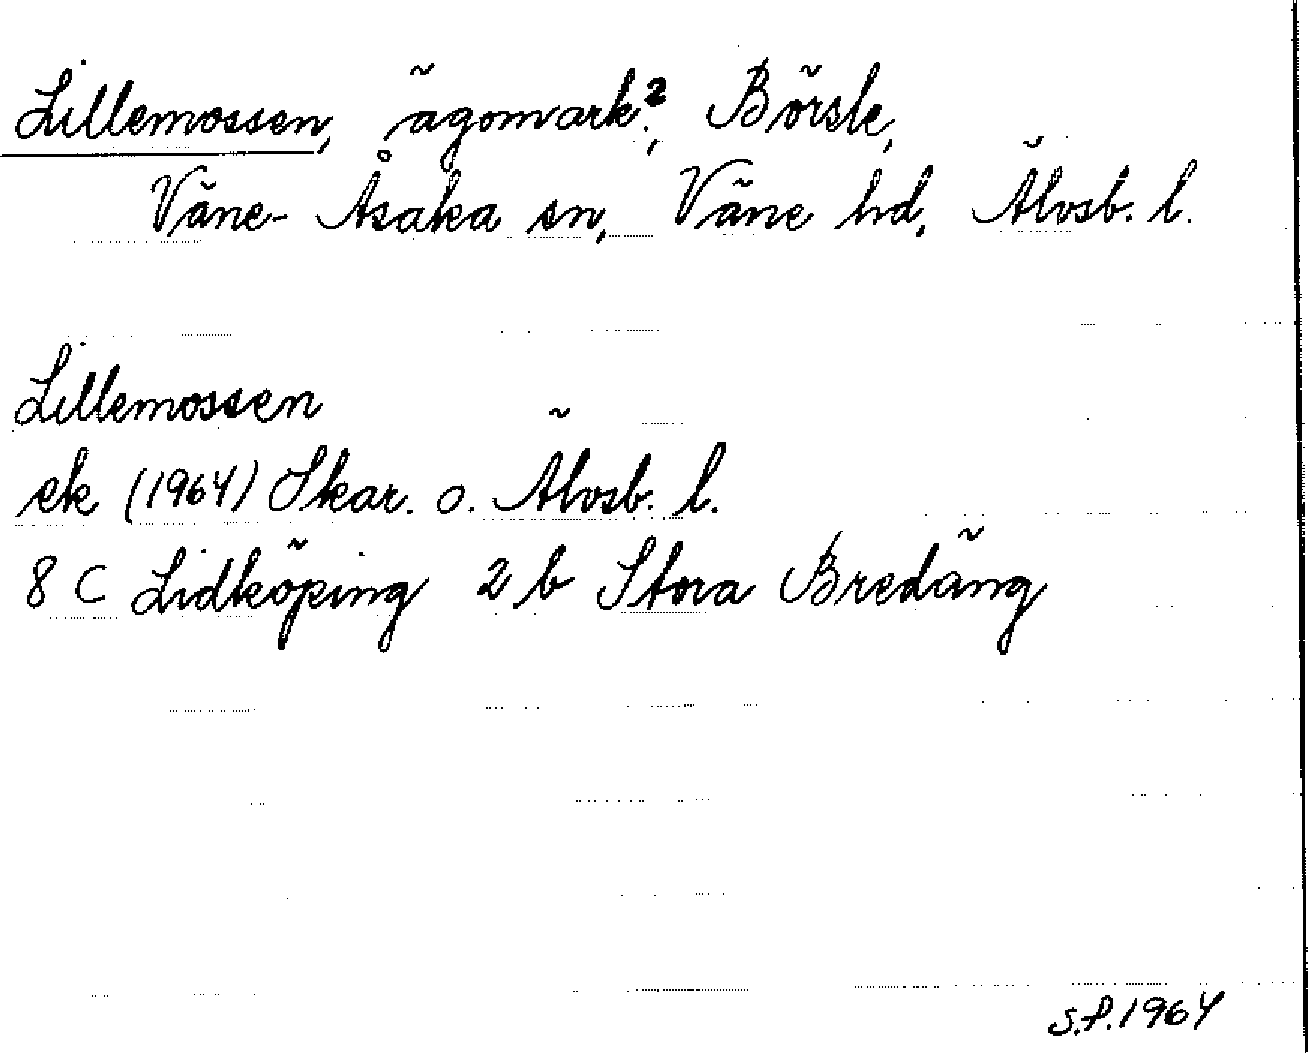 Lillemossen, ägomark?, Börsle,
Väne-Åsaka sn, Väne hd, Älvsb. l.
Lillemossen
ek (1964) Skar. o. Älvsb. l.
8 C Lidköping 2 b Stora Bredäng
S.P. 1964